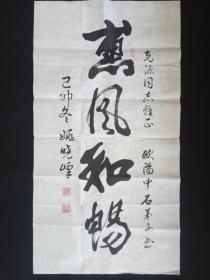 克源同志雅正
惠风和畅
欧阳中石弟子書
己卯冬 姬晓峰